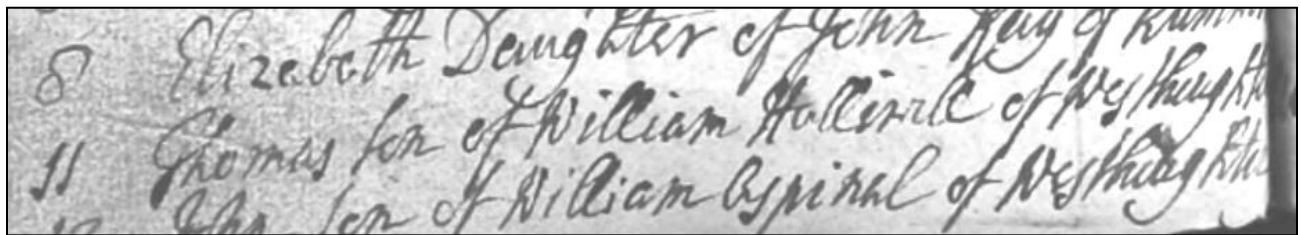 8 Elizabeth Daughter of John Kay of Rumm
11 Thomas son of William Halliwell of Westhoughto
John son of William Aspinal of Westhoughto